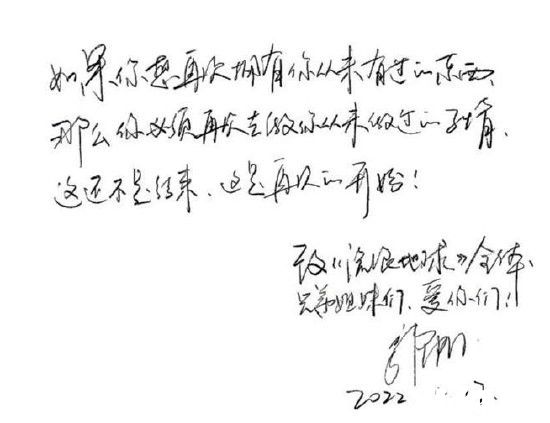 如果你想再次拥有你从未有过的东西、
那么你必须再次去做你从未做过的事情、
这还不是结束、这是再次的开始！
致《流浪地球》全体
兄弟姐妹们、爱你们！
郭帆
2022